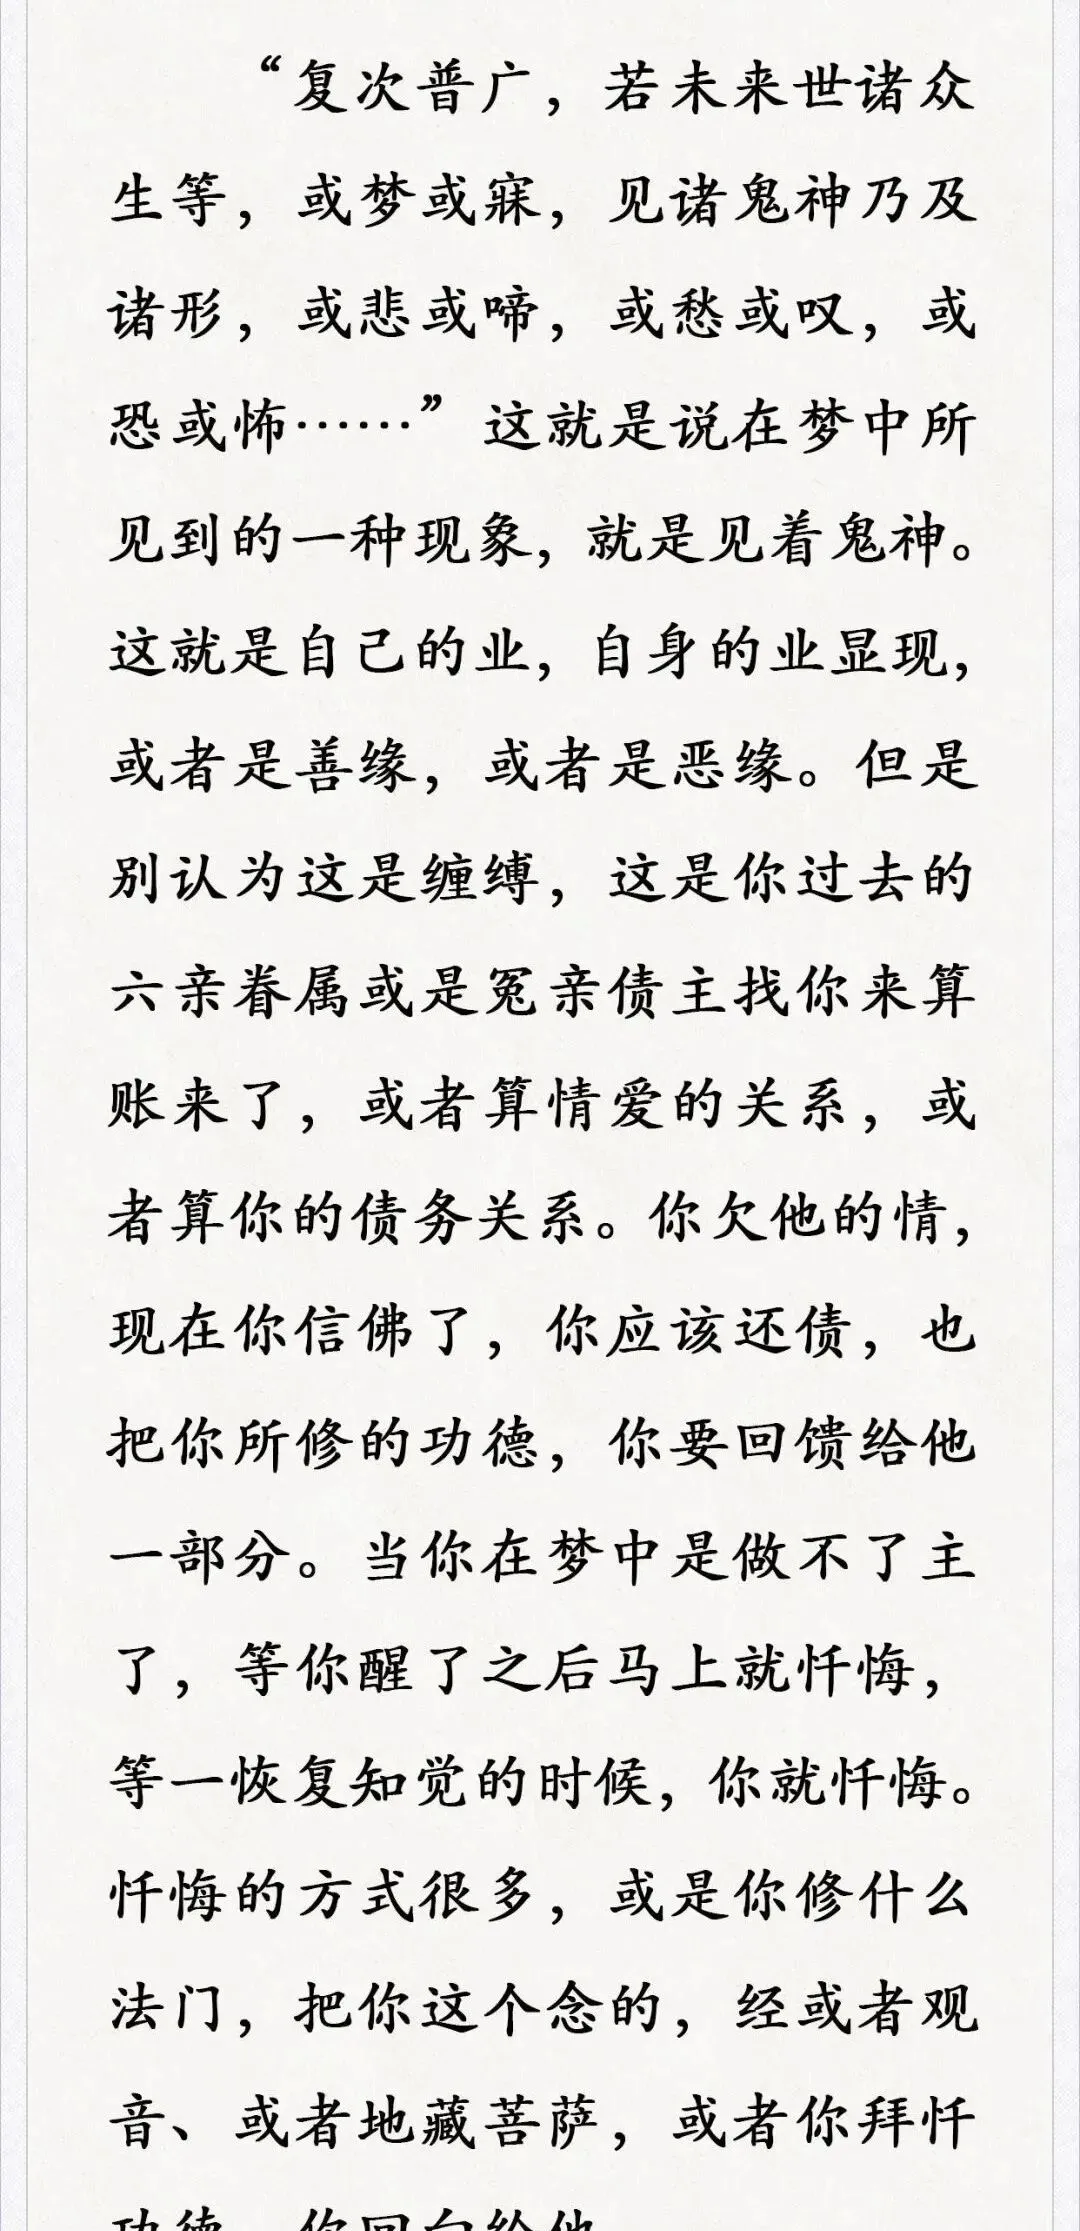 “复次普广，若未来世诸众
生等，或梦或寐，见诸鬼神乃及
诸形，或悲或啼，或愁或叹，或
恐或怖……”这就是说在梦中所
见到的一种现象，就是见着鬼神。
这就是自己的业，自身的业显现，
或者是善缘，或者是恶缘。但是
别认为这是缠缚，这是你过去的
六亲眷属或是冤亲债主找你来算
账来了，或者算情爱的关系，或
者算你的债务关系。你欠他的情，
现在你信佛了，你应该还债，也
把你所修的功德，你要回馈给他
一部分。当你在梦中是做不了主
了，等你醒了之后马上就忏悔，
等一恢复知觉的时候，你就忏悔。
忏悔的方式很多，或是你修什么
法门，把你这个念的，经或者观
音、或者地藏菩萨，或者你拜忏
功德，你回向给他